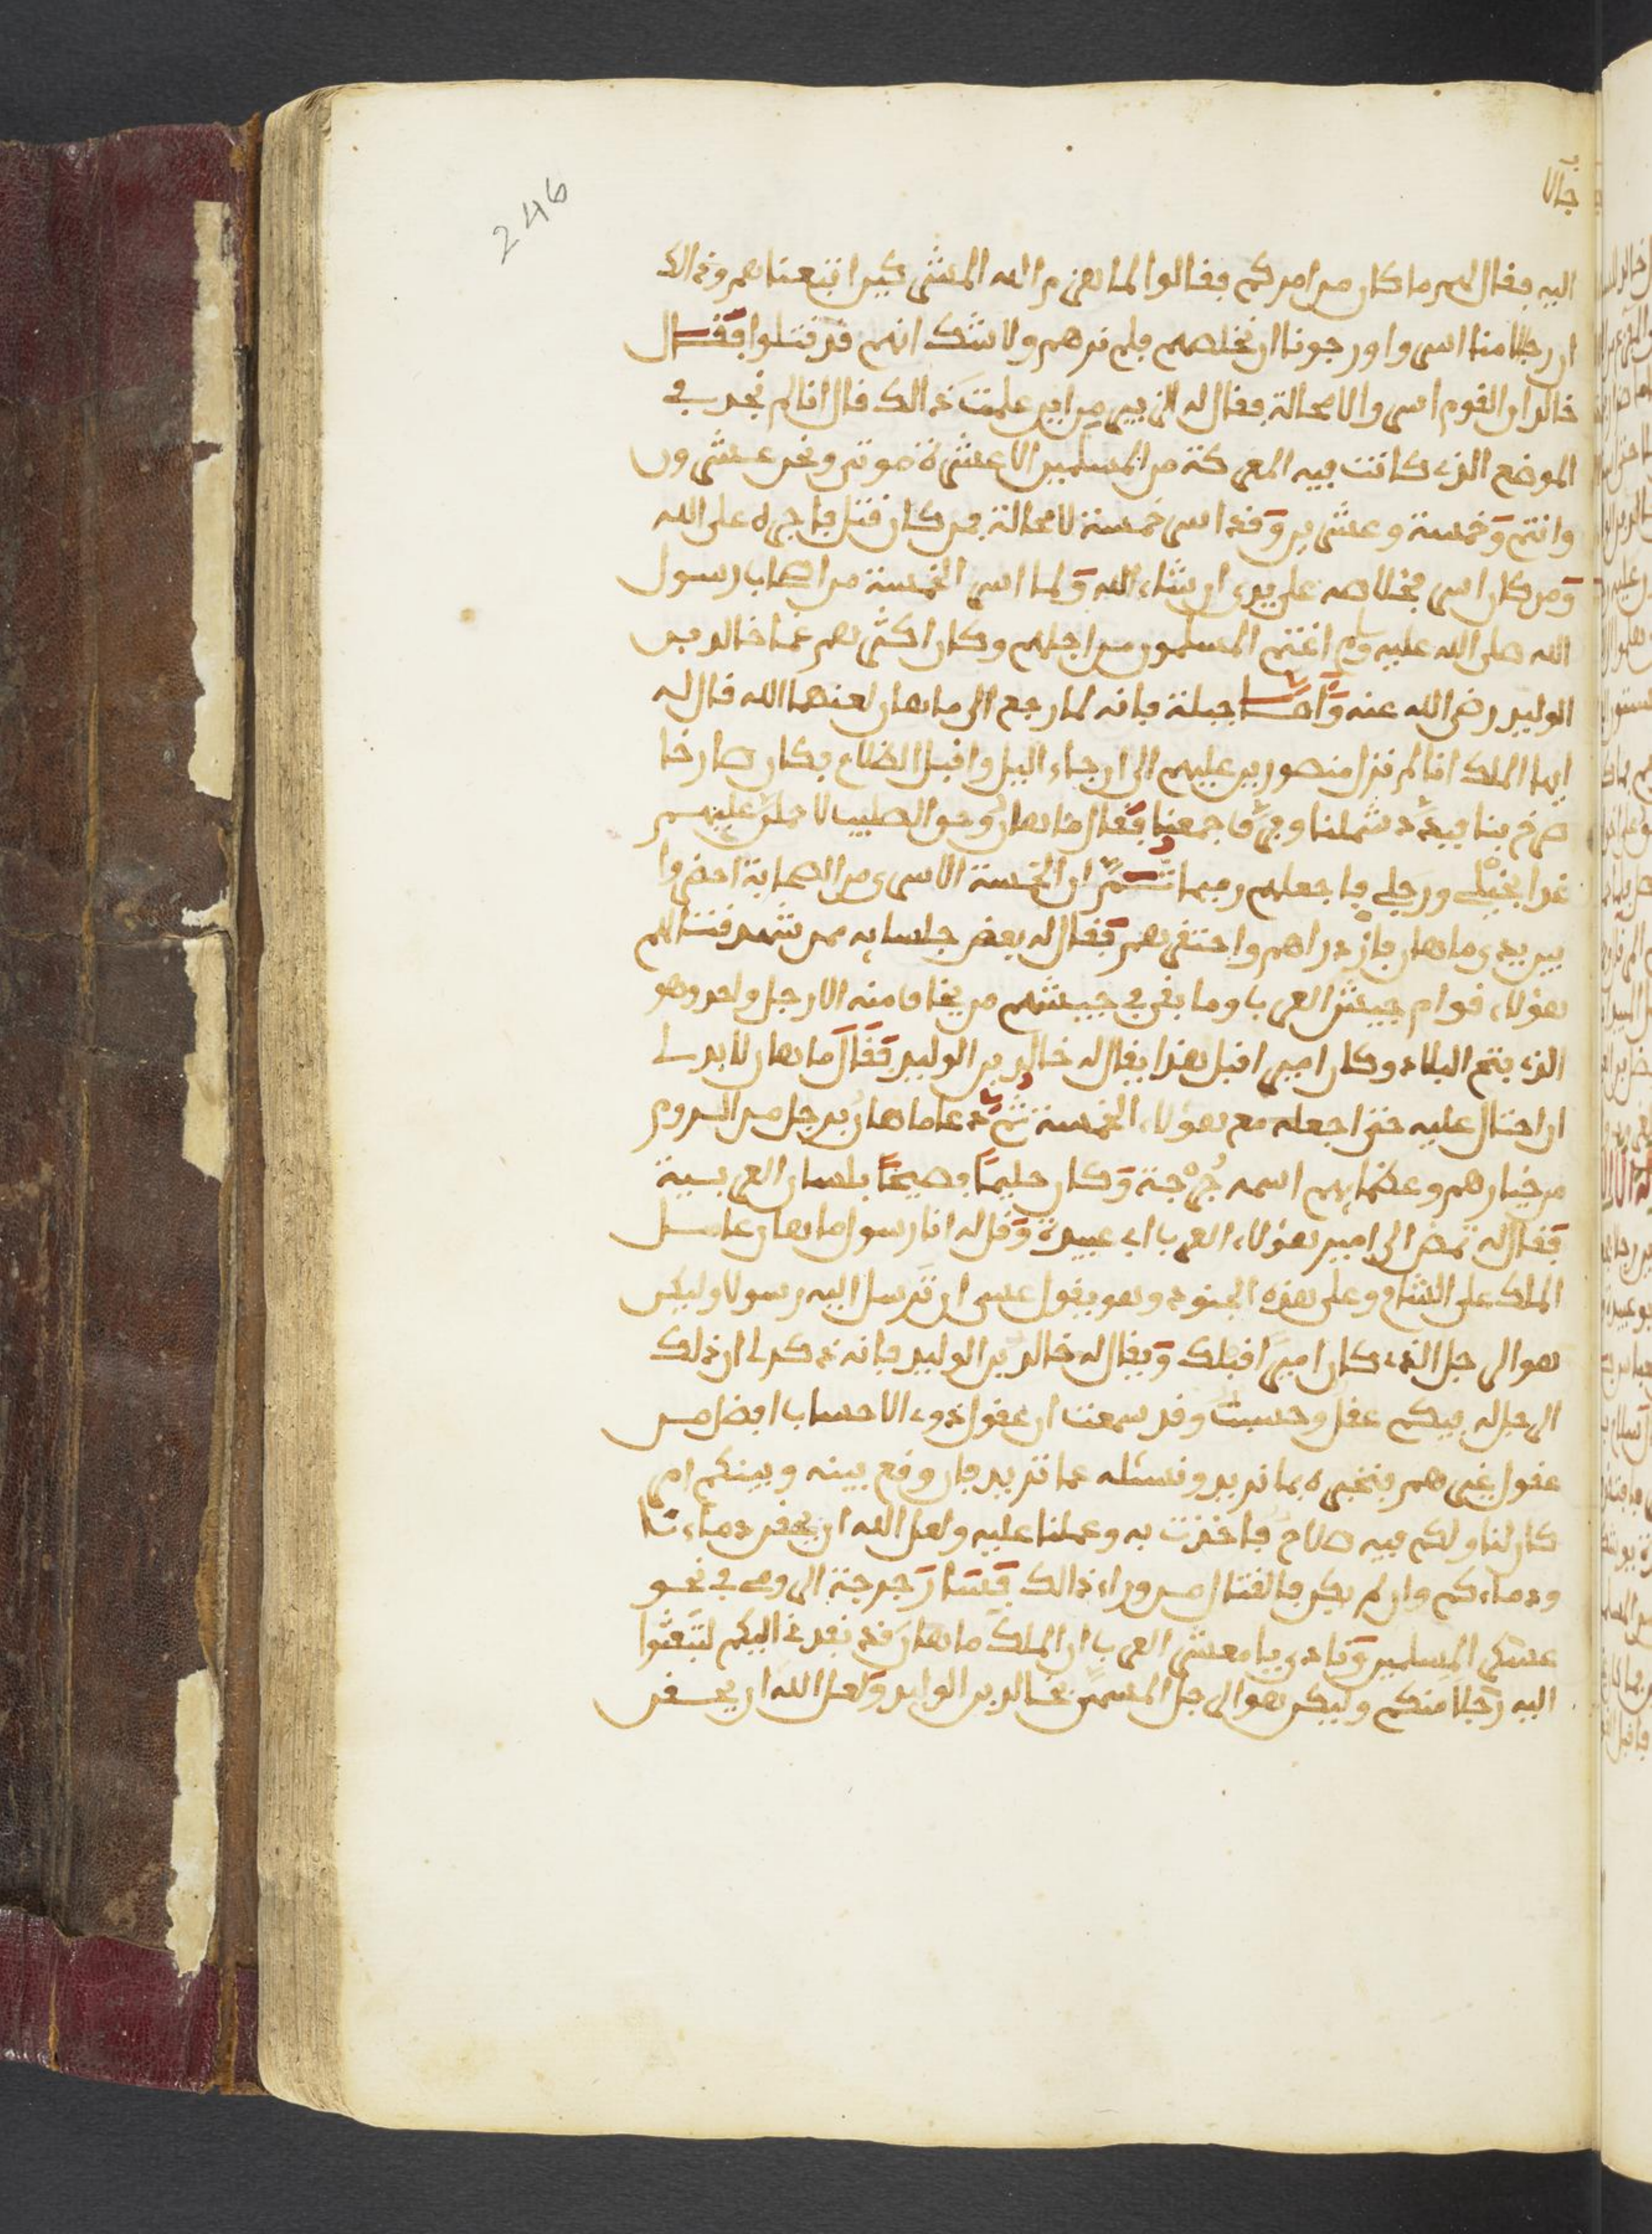 246
جالا
اليه فقال لهم ما كان من امركم فقالوا لما هزم الله المشركين اتبعناهم وذالك
ان رجالا منا اسروا ورجونا ان نخلصهم فلم نرهم ولا شك انهم قد قتلوا فقال
خالد ان القوم اسروا لا محالة فقال له الزبير من اين علمت ذالك قال انا لم نجد في
الموضع الذي كانت فيه المعركة من المسلمين الا عشرة موتى ونحن عشرون
وانتم وخمسة وعشرين وقد اسر خمسة لا محالة فمن كان قتل فاجره على الله
ومن كان اسر فخلاصه على يدي ان شاء الله ولما اسر الخمسة من اصحاب رسول
الله صلى الله عليه وسلم اغتم المسلمون من اجلهم وكان اكثرهم غما خالد بن
الوليد رضي الله عنه واما جبلة فانه لما رجع الى ماهان لعنهما الله قال له
ايها الملك انا لم نزل منصورين عليهم الى ان جاء اليل واقبل الظلام فكان صارخا
صرخ بنا فبدد شملنا وفرق جمعنا فقال ماهان وحق الصليب لاحملن عليهم
غدا بخيلي ورجلي فاجعلهم رميما ثم ان الخمسة الاسرى من الصحابة احضروا
بين يدي ماهان فازدراهم واحتقرهم فقال له بعض جلسايه ممن شهد قتالهم
هؤلاء قوام جيش العرب وما بقي في جيشهم من يخاف منه الا رجل واحد وهو
الذي فتح البلاد وكان امير اقبل هذا يقال له خالد بن الوليد فقال ماهان لابد لي
ان احتال عليه حتى اجعله مع هؤلاء الخمسة ثم دعا ماهان برجل من الروم
من خيارهم وعظمايهم اسمه جرجة وكان حليما فصيحا بلسان العربية
فقال له تمض الى امير هؤلاء العرب ابي عبيدة وقل له انا رسول ماهان عامل
الملك على الشام وعلى هذه الجنود وهو يقول عسى ان ترسل اليه رسولا وليكن
هو الرجل الذي كان اميرا قبلك ويقال له خالد بن الوليد فانه ذكر لي ان ذلك
الرجل له فيكم عقل وحسب وقد سمعت ان عقول ذوي الاحساب افضل من
عقول غيرهم فنخبره بما نريد ونسئله عما تريد فان وقع بيننه وبينكم امر
كان لنا ولكم فيه صلاح فاخذت به وعملنا عليه ولعل الله ان يحقن دماءنا
ودماءكم وان لم يكن فالقتال من وراء ذالك فسار جرجة الرومي في نحو
عسكر المسلمين ونادى يا معشر العرب ان الملك ماهان قد بعدني اليكم لتبعثوا
اليه رجلا منكم وليكن هو الرجل المسمى بخالد بن الوليد ولعل الله ان يحقن